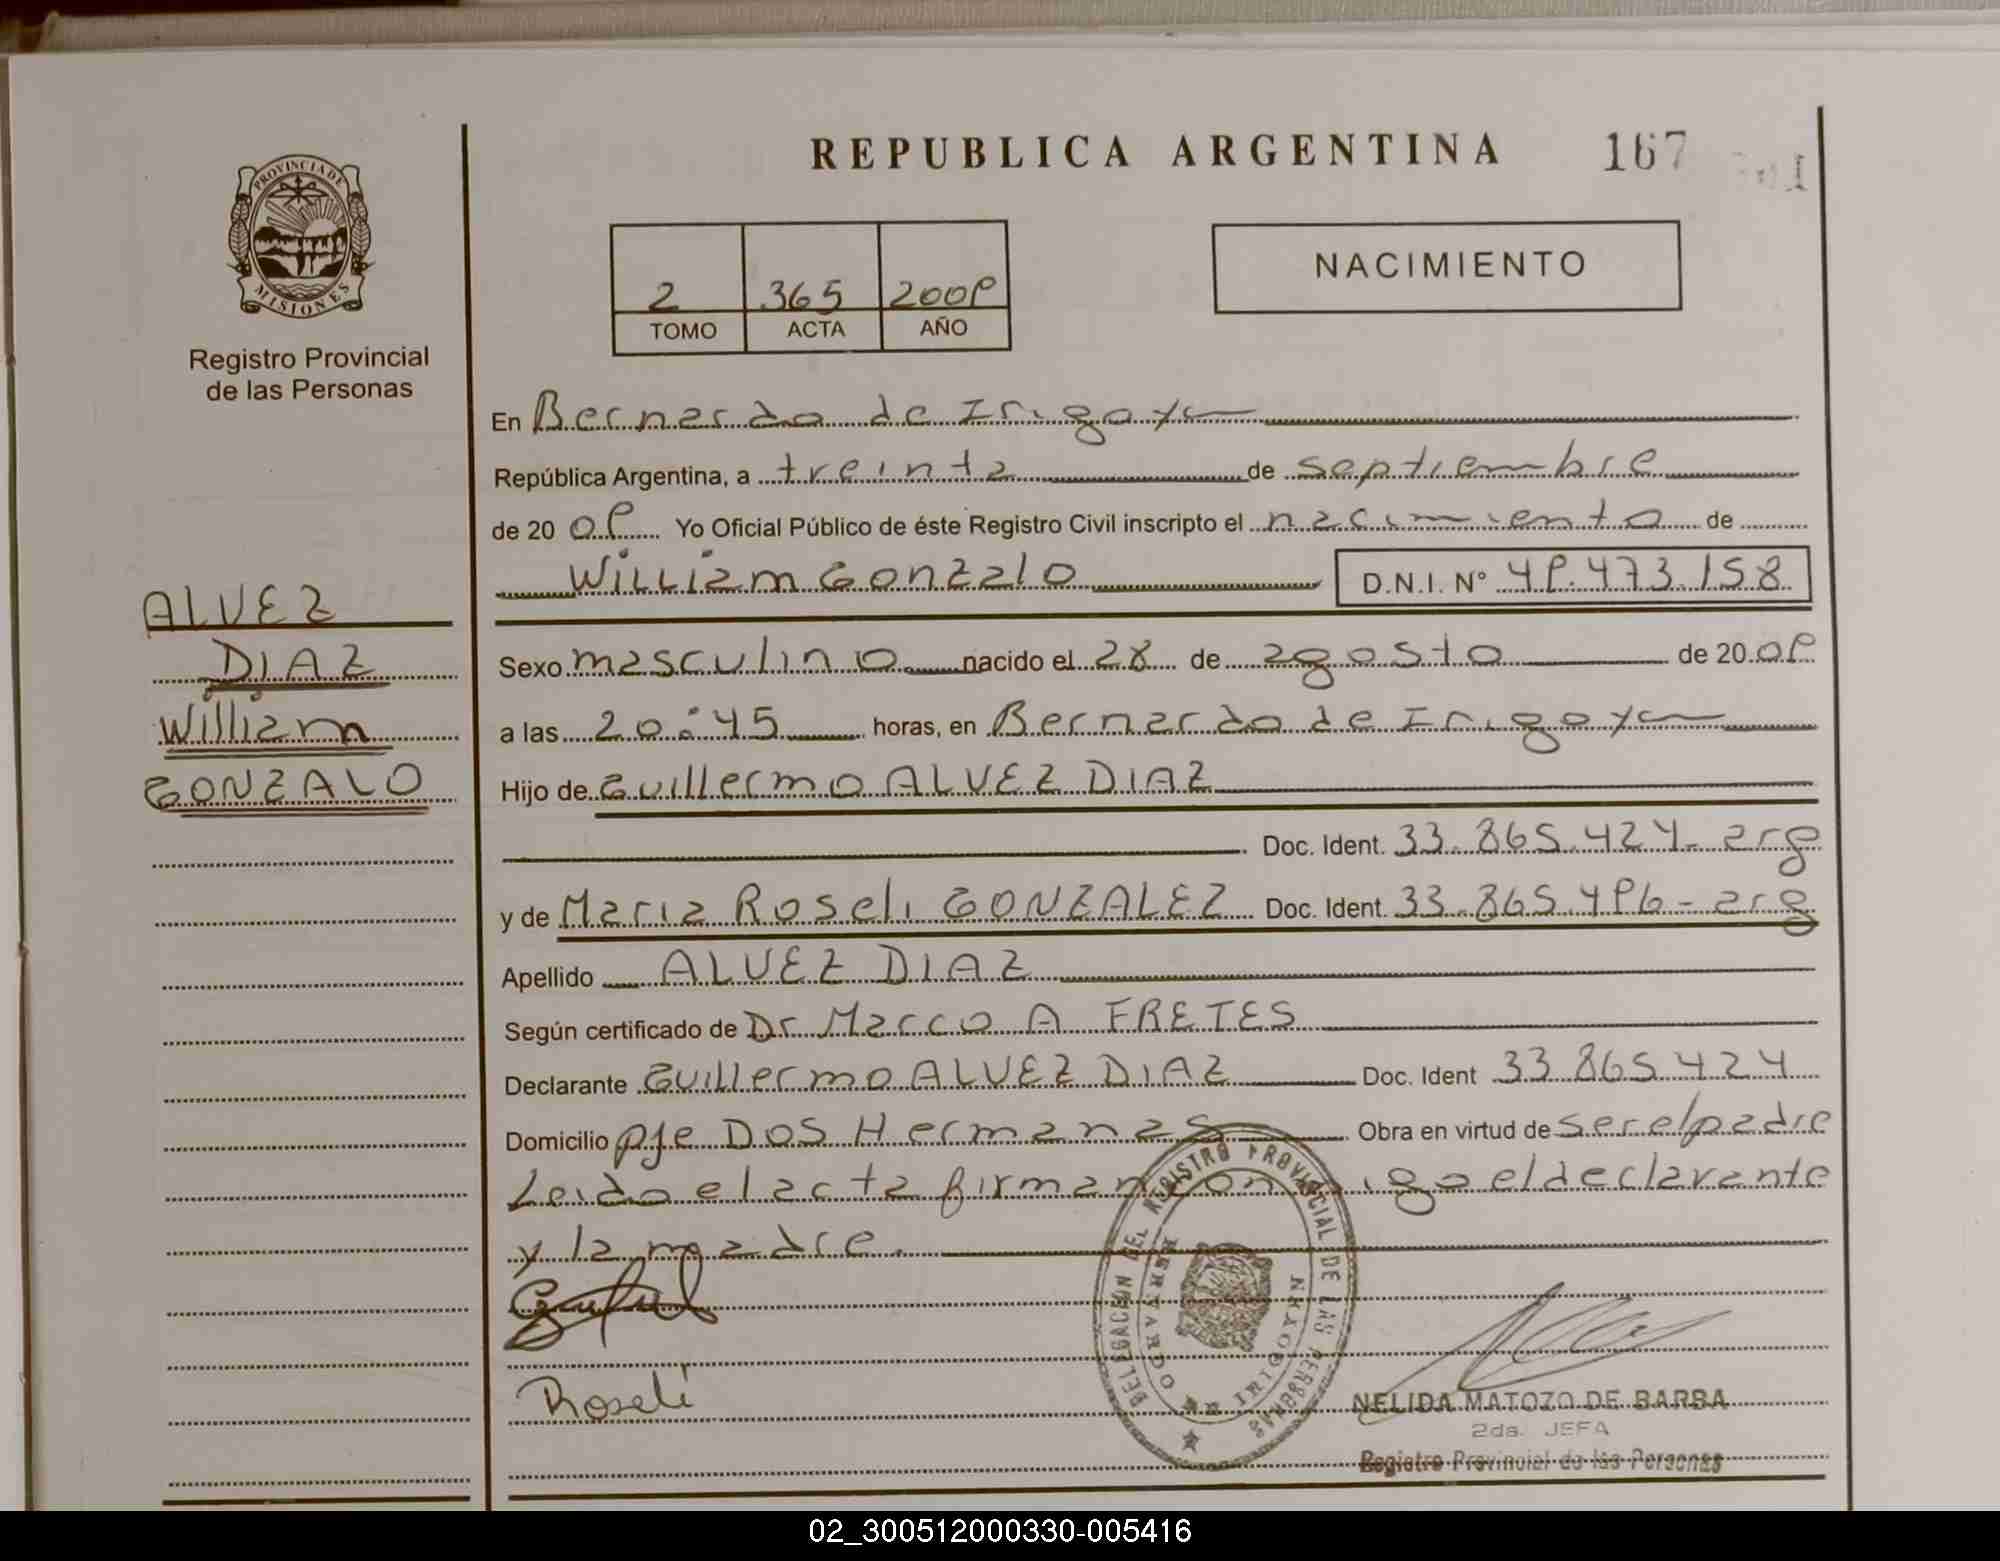 REPUBLICA ARGENTINA 167
PROVINCIA DE MISIONES
Registro Provincial
de las Personas
2 365 2009
TOMO ACTA AÑO
NACIMIENTO
En Bernardo de Irigoyen
República Argentina, a treinta de septiembre
de 20 09 Yo Oficial Público de éste Registro Civil inscripto el nacimiento de
William Gonzalo D.N.I. Nº 49.473.158
ALVEZ
DIAZ
William
GONZALO
Sexo masculino nacido el 28 de agosto de 20 09
a las 20:45 horas, en Bernardo de Irigoyen
Hijo de Guillermo ALVEZ DIAZ
Doc. Ident. 33.865.424- arg
y de Maria Roseli GONZALEZ Doc. Ident. 33.865.496- arg
Apellido ALVEZ DIAZ
Según certificado de Dr Marco A FRETES
Declarante Guillermo ALVEZ DIAZ Doc. Ident 33 865 424
Domicilio pje DOS Hermanas Obra en virtud de ser el padre
Leido el acta firman conmigo el declarante
y la madre.
Roseli
DELEGACION DEL REGISTRO PROVINCIAL DE LAS PERSONAS
BERNARDO IRIGOYEN
NELIDA MATOZO DE BARBA
2da. JEFA
Registro Provincial de las Personas
02_300512000330-005416